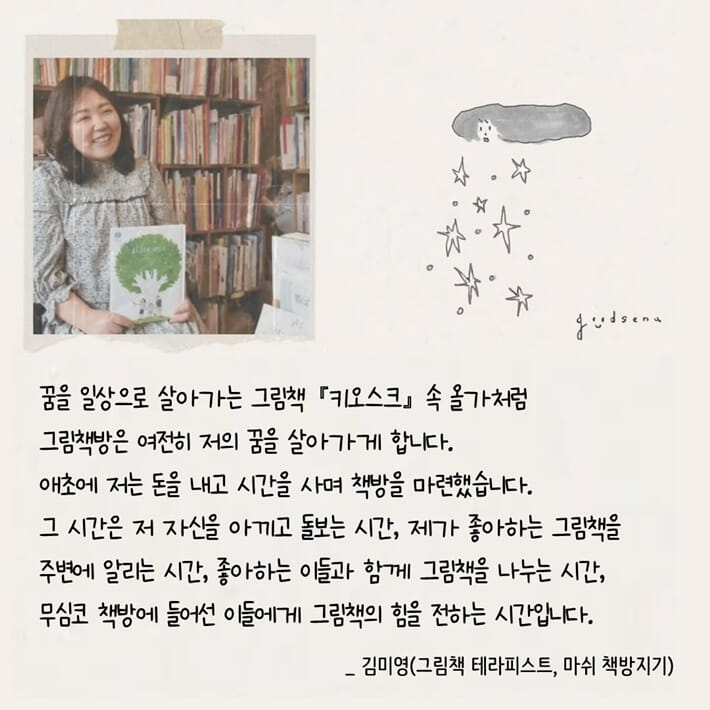 goodsena
꿈을 일상으로 살아가는 그림책 『키오스크』 속 올가처럼
그림책방은 여전히 저의 꿈을 살아가게 합니다.
애초에 저는 돈을 내고 시간을 사며 책방을 마련했습니다.
그 시간은 저 자신을 아끼고 돌보는 시간, 제가 좋아하는 그림책을
주변에 알리는 시간, 좋아하는 이들과 함께 그림책을 나누는 시간,
무심코 책방에 들어선 이들에게 그림책의 힘을 전하는 시간입니다.
_ 김미영(그림책 테라피스트, 마쉬 책방지기)